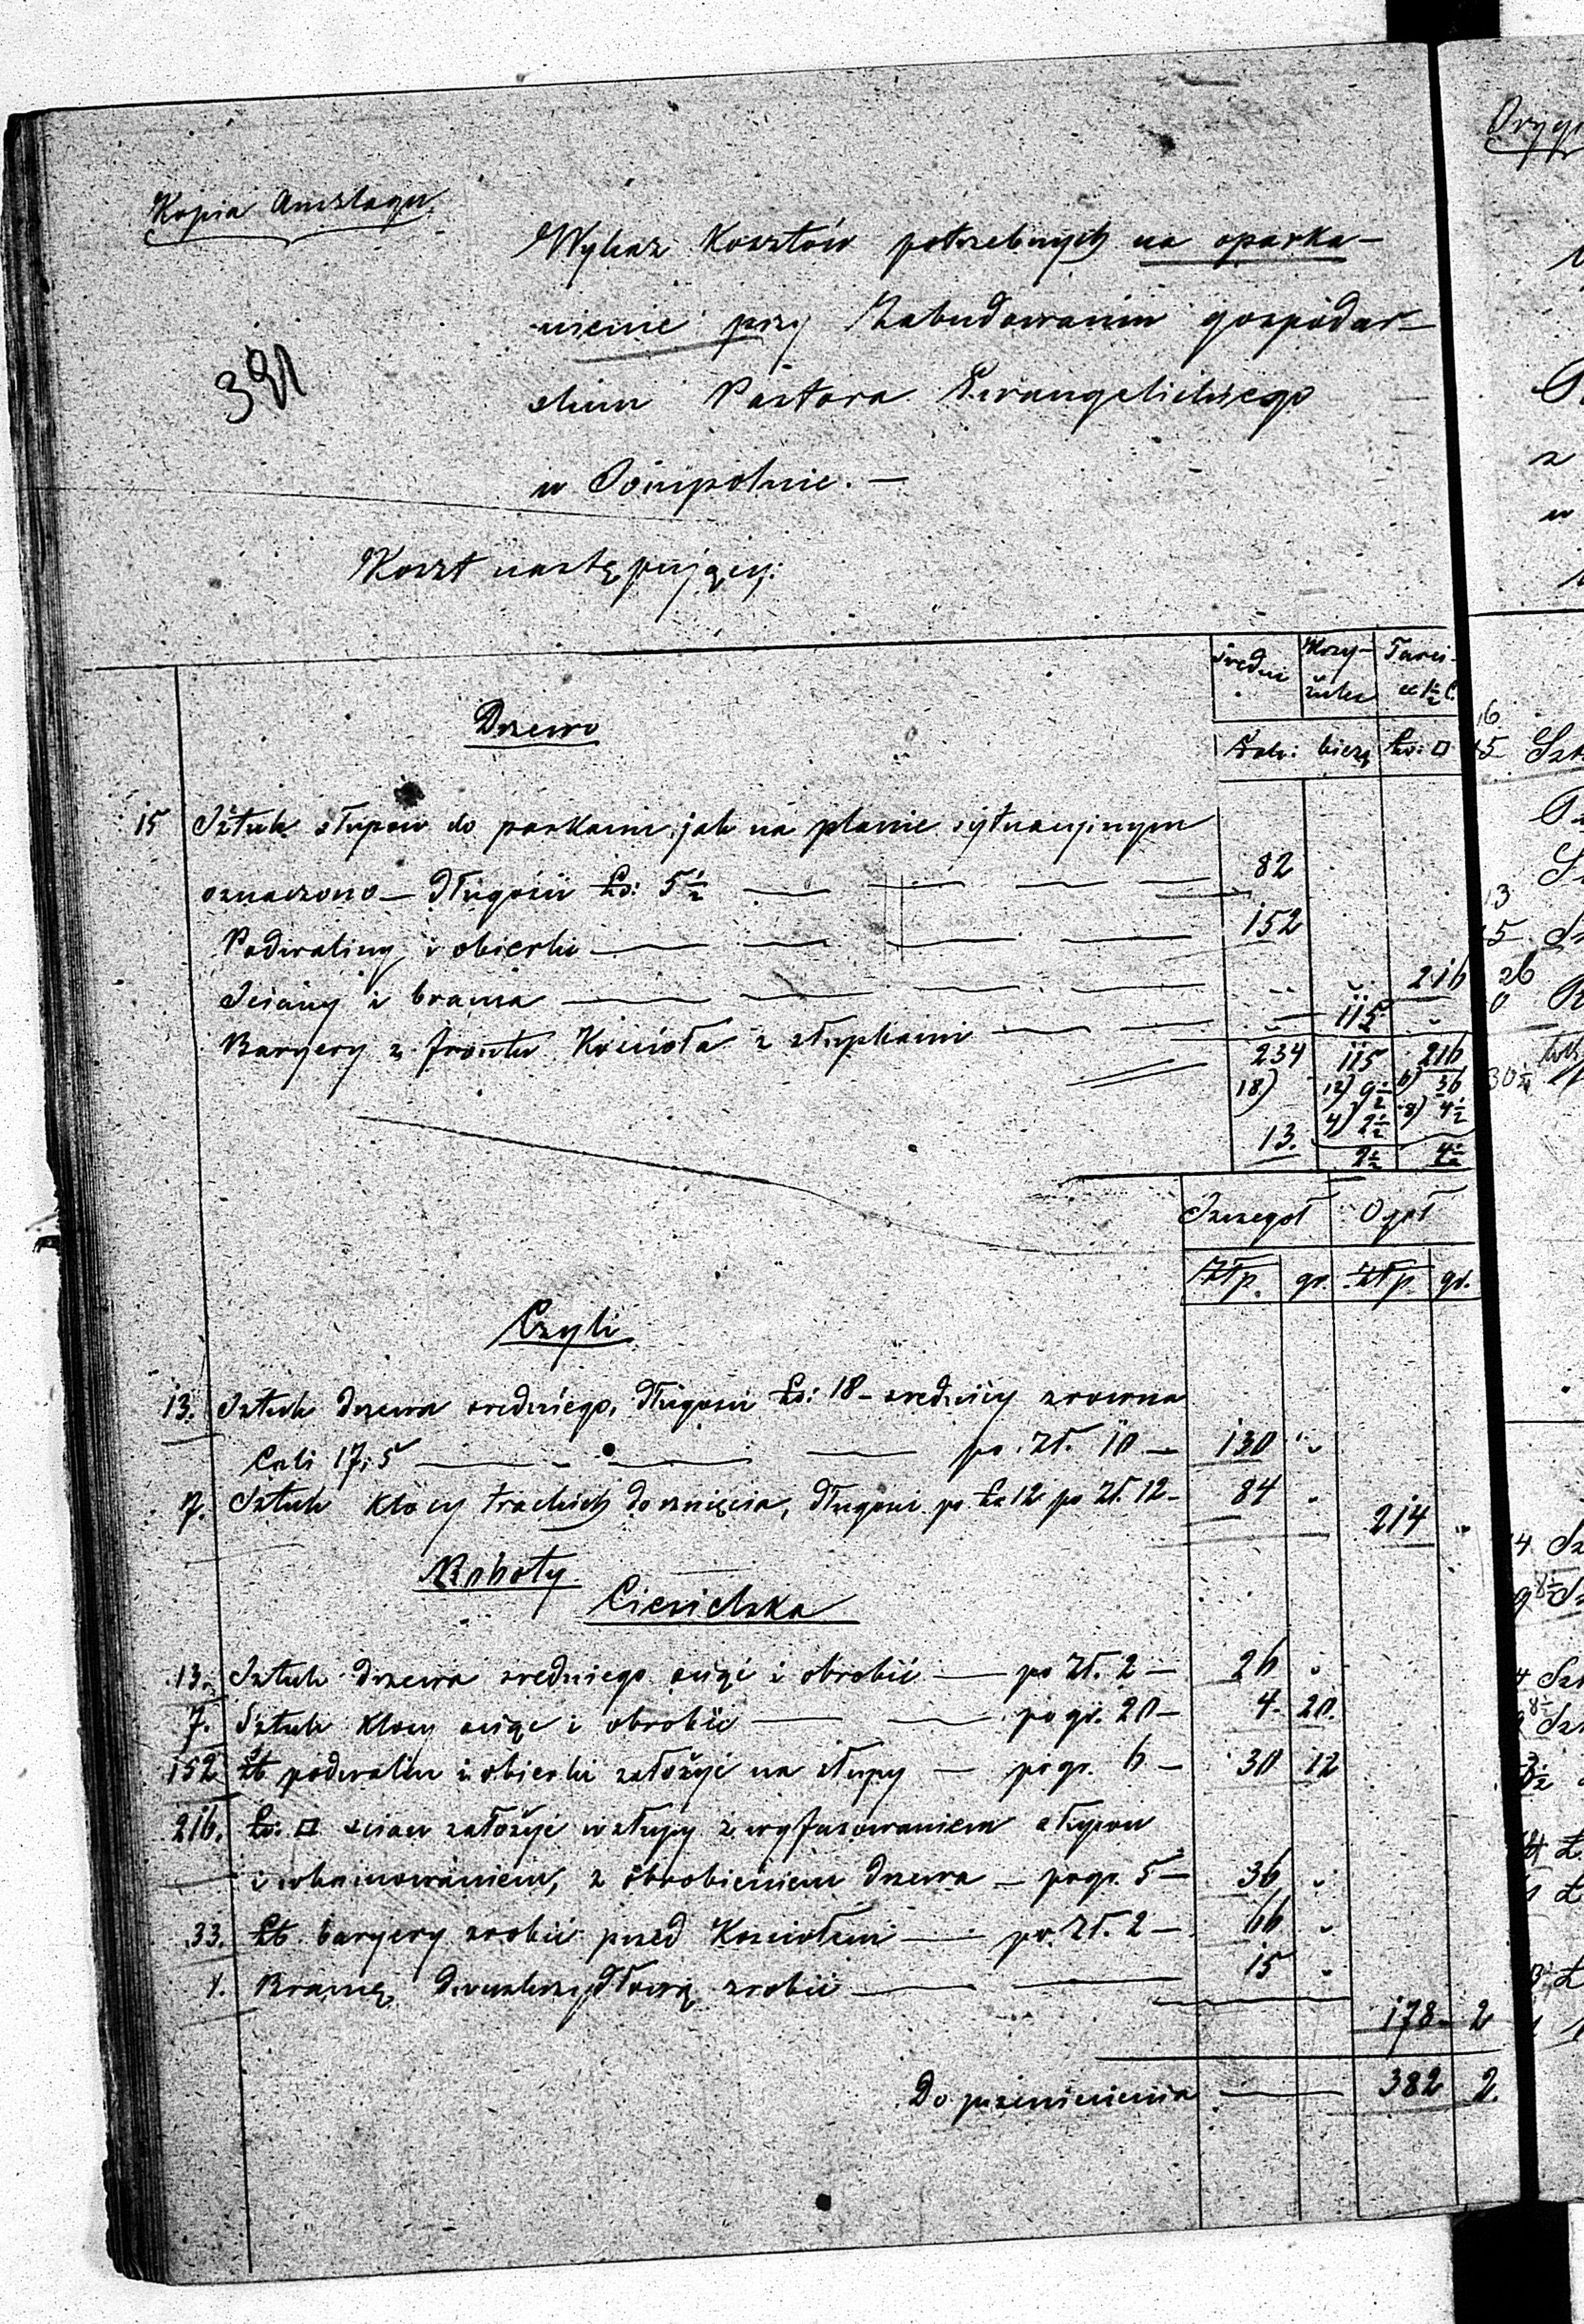 Kopia Anszlagu
Wykaz Kosztów potrzebnych na oparka-
nienie przy Zabudowaniu gospodar-
skim Pastora Ewangelickiego
w Sompolnie. —
391
Koszt następujący:
Średni Krzy- Tarci-
żulca a 1½ C.
Drzewo
Łok: bieżą Ło: □
15 Sztuk słupow do parkanu jak na planie sytuacyjnym
oznaczono — długości Ło: 5½ 82
Podwaliny i obierki 152
Sciany i brama 216
Baryery z frontu Kościoła z słupkami 115
234 115 216
18) 12) 9½ 6) 36
4) 2½ 8) 4½
13. 2½ 4½
Szczegoł Ogoł
Złp. gr. Złp. gr.
Czyli
13. Sztuk drzewa sredniego, długosci Ło: 18 – srednicy zrowna
Cali 17,5 po Zł. 10 — 130 "
7. Sztuk Klocy trackich do rznięcia, długosci po Ło 12 po Zł. 12 — 84 "
214 "
Roboty
Ciesielska
13. Sztuk drzewa sredniego sciąć i obrobić — po Zł. 2 — 26 "
7. Sztuk Klocy sciąc i obrobić — po gr. 20 — 4. 20.
152 Łt podwalin i obierki założyć na słupy — po gr. 6 — 30 12
216. Ło: □ scian założyć w słupy z wyfasowaniem słupow
i wkopowaniem, z obrobieniem drzewa — po gr. 5 — 36 "
33. Łt. baryery zrobić przed Kosciołem — po Zł. 2 — 66 "
1. Bramę dwuskrzydłową zrobić 15 "
178 — 2
Do przeniesienia 382 2.